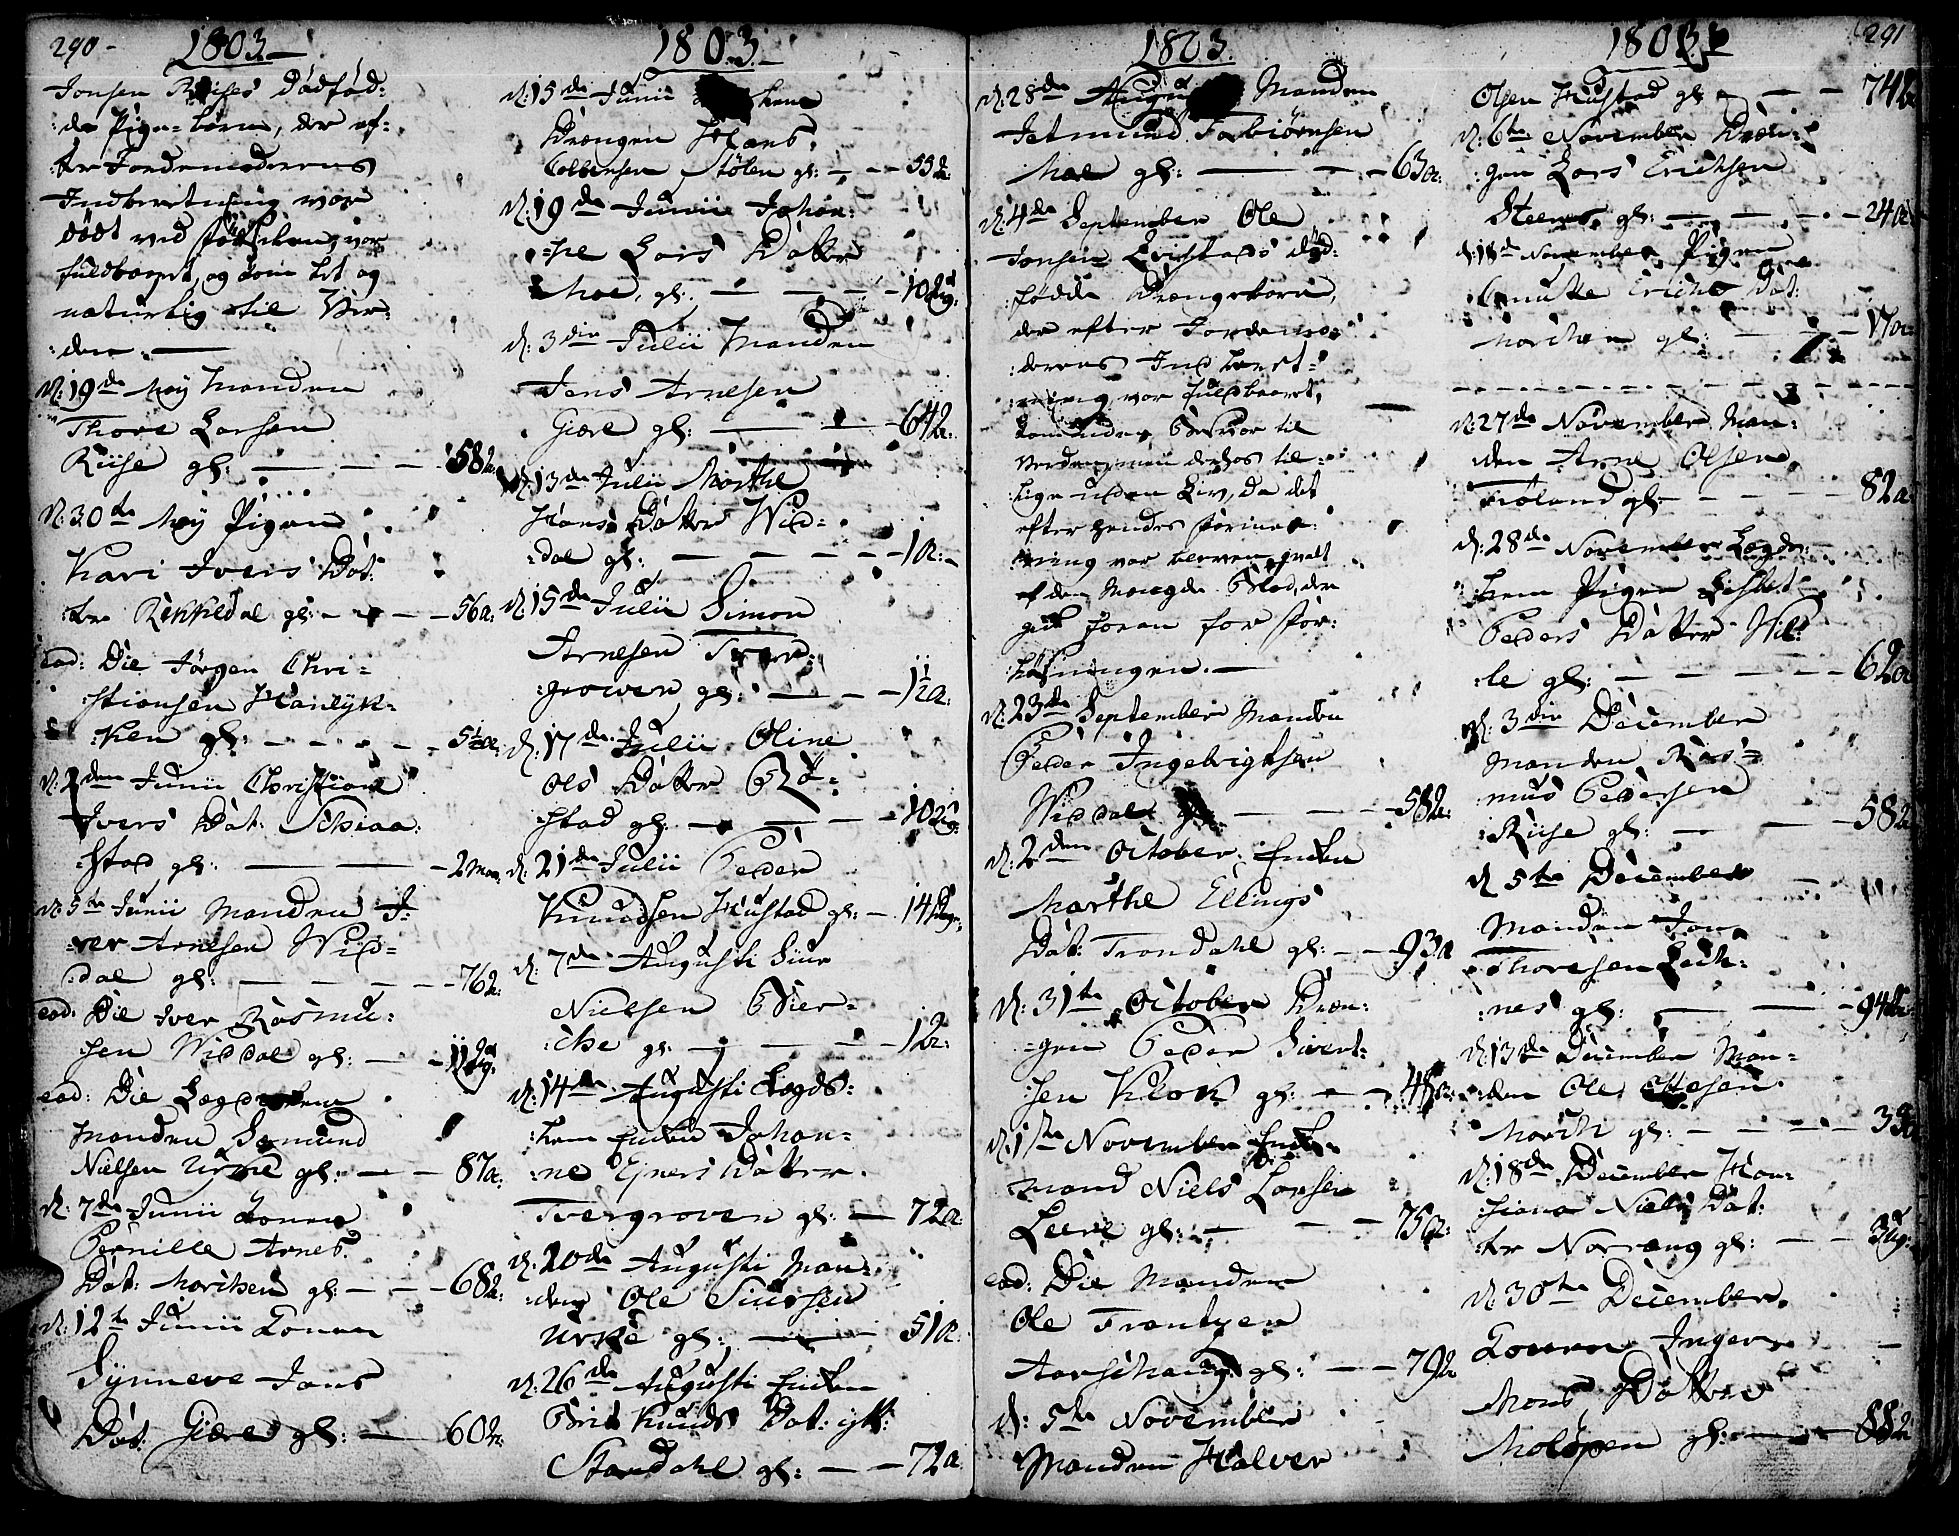 290-
1803.
Jonsen Riises Dødfød:
:de Pige-barn, der ef-
:ter Jordemoderens
Indberetning var
dødt ved
fuldbaaret, og kom let og
naturlig til Ver:
:den.
d: 19de Maÿ Manden
Thore Larsen
Riise gl: 58 a:
d: 30te Maÿ Pigen
Kari Ivers Dat:
:ter Rekkedal gl: 56 a:
eod: Die Jørgen Chri-
:stiansen Hareÿk-
:ken gl:
d: 2den Junii Christiane
Ivers Dat: Schiaa:
:stad gl: 2 maa:
d: 5te Junii Manden I-
:ver Arnesen Wid-
:dal gl: 76 a:
eod: Die Iver Rasmu:
:sen Widdal gl:
eod: Die Lægdslem
Manden Samund
Nielsen Urke gl: 87 a:
d: 7de Junii Konen
Pernille Arnes
Dat: Morchen gl: 68 a:
d: 12te Junii Konen
Sÿnneve Jons
Dat: Giære gl: 60 a:
1803.
d: 15de Junii
Drengen Hans
Colbensen Stølen gl: 55 a:
d: 19de Junii Johan:
:ne Lars Datter
Moe, gl: 10 ug:
d: 3die Julii Manden
Jens Arnesen
Giære gl: 64 a:
d: 13de Julii Marthe
Hans Datter Wid-
:dal gl: 1 a:
d: 15de Julii Simon
Arnesen Tver:
:groven gl: 1½ a:
d: 17de Julii Oline
Ols Datter
:stad gl: 10 ug:
d: 21de Julii Peder
Knudsen Hustad gl: 14 Dage
d: 7de Augusti Siur
Nielsen Bier-
:che gl: 12 a:
d: 14de Augusti Lægds:
:lem Enken Johan-
:ne Ejners Datter
Tvergroven gl: 72 a:
d: 20de Augusti Man:
:den Ole Siursen
Urke gl: 51 a:
d: 26de Augusti Enken
Brit Knuds Dat:
Standahl gl: 72 a:
1803.
d: 28de Manden
Jetmund Torbiørnsen
Moe gl: 63 a:
d: 4de September Ole
Jonsen død:
:fødde Drengebarn,
der efter Jordemo:
:derens Indberet:
:ning var fuldbaaret,
kom uden Besvær til
Verden, men derhos til-
:lige uden Liv, da det
efter hendes formee:
:ning var bleven qvalt
af den Mængde Blod, der
gik foran for for:
:løsningen.
d: 23de September Manden
Peder Ingebrigtsen
Widdal 58 a:
d: 2den October Enken
Marthe Ellings
Dat: Trandahl gl: 93 a:
d: 31te October Dren:
:gen Peder Sivert:
:sen Klok gl: 45 a:
d: 1te November Enke
mand Niels Larsen
Leere gl: 75 a:
eod: Die Manden
Ole Frantzen
Aarschaug gl: 79 a:
d: 5te November
Manden Halver
1803.
291
Olsen Hustad gl: 74 a:
d: 6te November Dren:
:gen Lars Erichsen
Steens gl: 24 a:
d: 18de November Pigen
Gnutte Erichs Dat:
Morchen gl: 17 a:
d: 27de November Man:
:den Arne Olsen
Frøland gl: 82 a:
d: 28de November Lægds:
:lem Pigen Lisbet
Peders Datter Vil:
:le gl: 62 a:
d: 3die December
Manden Ras:
:mus Pedersen
Riise gl: 58 a:
d: 5te December
Manden Jon
Thoresen Lech:
:nes gl: 94 a:
d: 13de December Man-
:den Ole Ottesen
Morch gl: 39
d: 18de December Han:
:siana Niels Dat:
:ter Norrang gl: 3 ug:
d: 30te December
Konen Inger
Mons Datter
Moldskreen gl: 88 a: